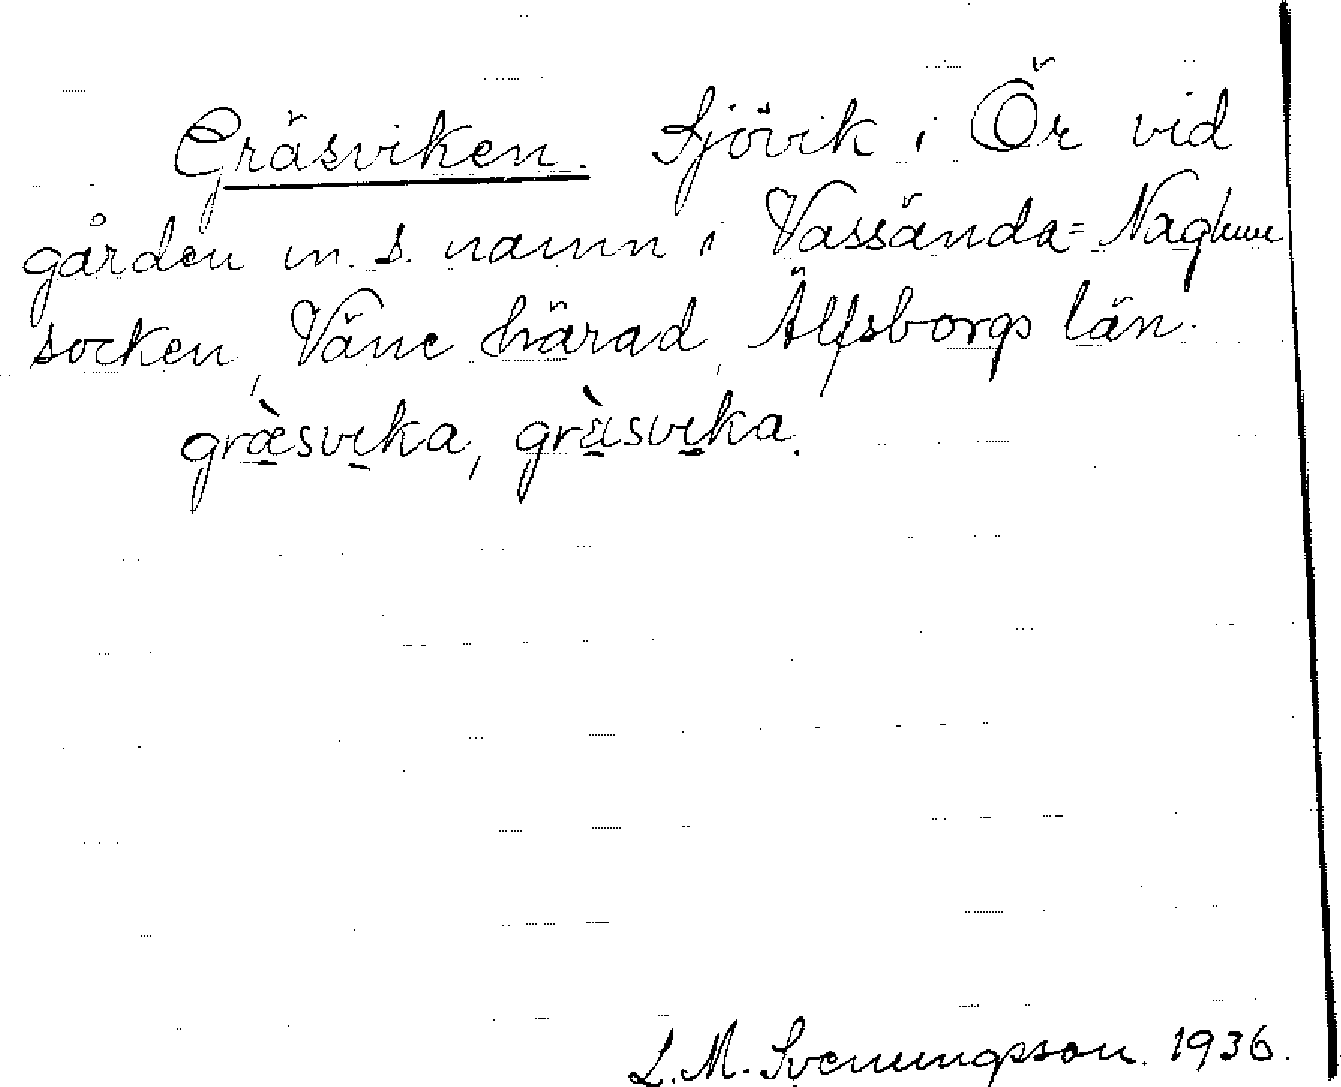 Gräsviken. Sjövik i Ör vid
gården m. s. namn i Vassända-Naglum
socken, Väne härad, Älfsborgs län.
græ̀svika, grä̀svika.
L. M. Svenungsson. 1936.